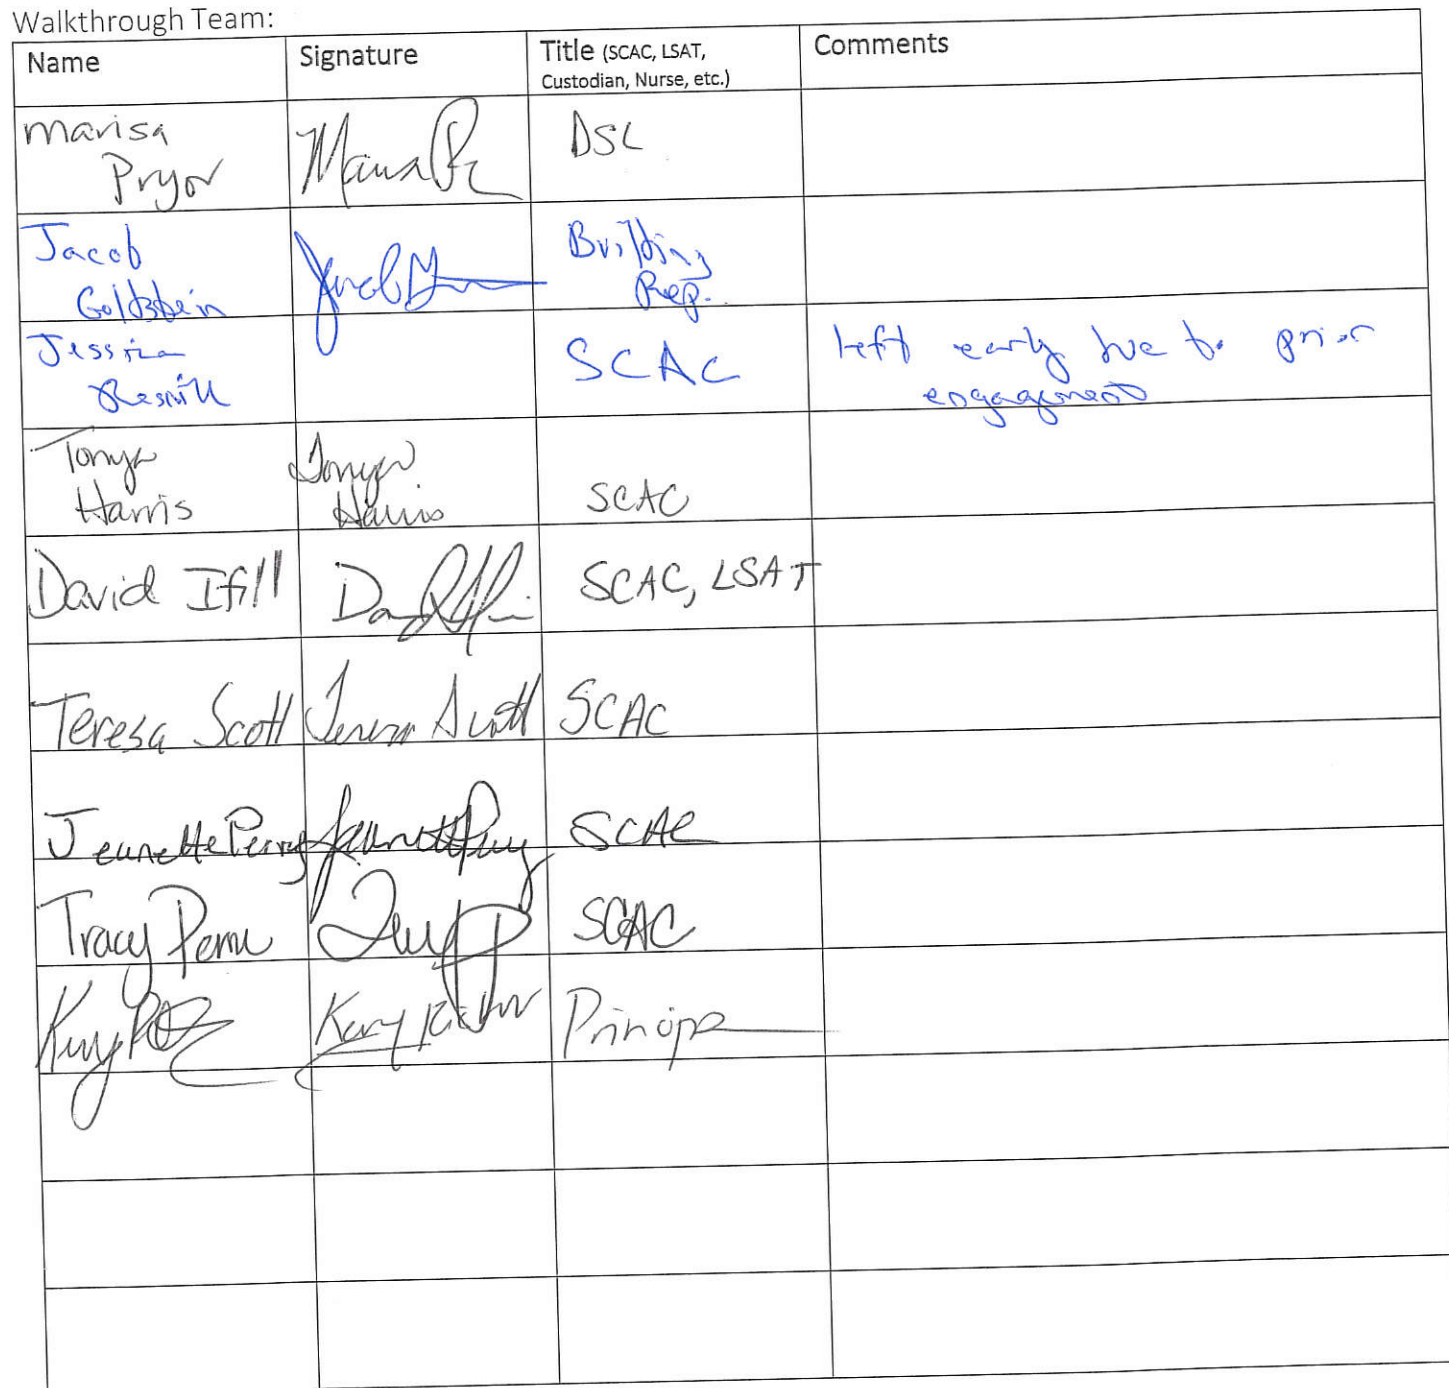 Walkthrough Team:
Name Signature Title (SCAC, LSAT, Custodian, Nurse, etc.) Comments
Marisa
Pryor DSL
Jacob
Goldstein Building
Rep.
Jessica SCAC left early due to prior
engagement
Tonya Tonya
Harris Harris SCAC
David Ifill SCAC, LSAT
Teresa Scott Teresa Scott SCAC
Jeanette Perry Jeanette Perry SCAC
Tracy SCAC
Principal